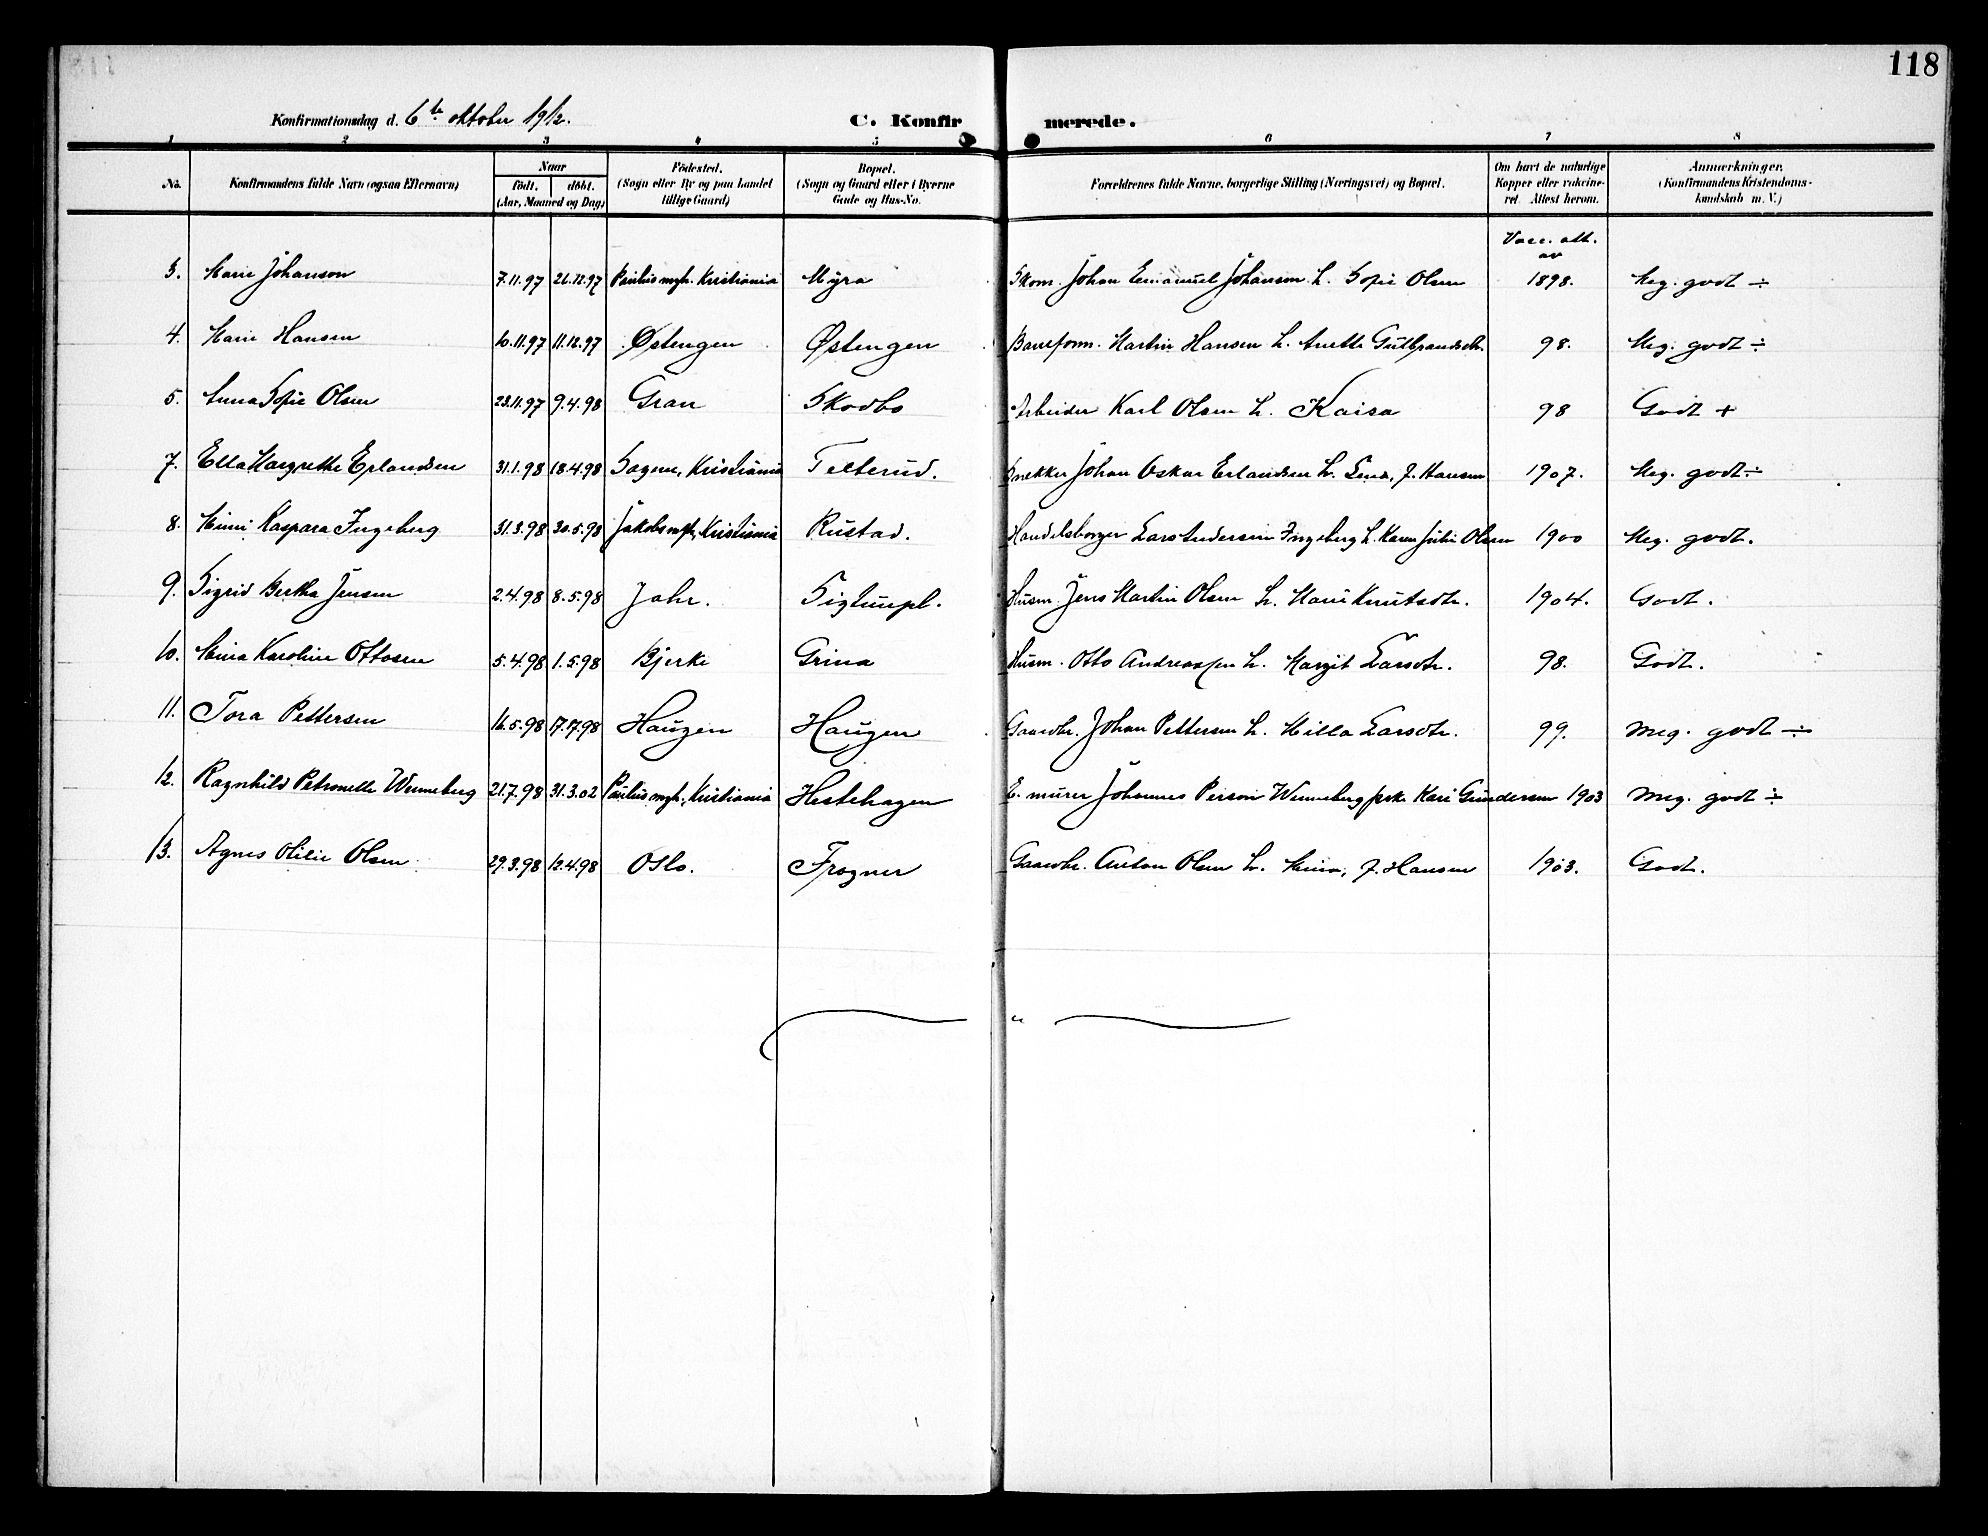 118
Konfirmationsdag d. 6te oktober 1912.
C. Konfirmerede.
1 2 3 4 5 6 7 8
No. Konfirmandens fulde Navn (ogsaa Efternavn) Naar födt. döbt. (Aar, Maaned og Dag) Födested. (Sogn eller By og paa Landet tillige Gaard) Bopæl. (Sogn og Gaard eller i Byerne Gade og Hus-No. Forældrenes fulde Navne, borgerlige Stilling (Næringsvei) og Bopæl. Om havt de naturlige Kopper eller vakcineret. Attest herom. Anmærkninger. (Konfirmandens Kristendomskundskab m. V.)
Vacc. att. av
3. Marie Johanson 7.11.97 26.12.97 Paulus mgh. Kristiania Myra Skom. Johan Emanuel Johanson h. Sofie Olsen 1898. Meg. godt ÷
4. Marie Hansen 10.11.97 11.12.97 Østengen Østengen Baneform. Martin Hansen h. Anette Gulbrandsdtr. 98. Meg. godt ÷
5. Anna Sofie Olsen 23.11.97 9.4.98 Gran Skodbo Arbeider Karl Olsen h. Kaisa 98 Godt +
7. Ella Margrethe Erlandsen 31.1.98 18.4.98 Sagene, Kristiania Telterud. Snekker Johan Oskar Erlandsen h. Lina, f. Hansen 1907. Meg. godt ÷
8. Mimi Kaspara Ingeberg 31.3.98 30.5.98 Jakobs mgh, Kristiania Rustad. Handelsborger Lars Andersen Ingeberg h. Karen Julie Olsen 1900 Meg. godt.
9. Sigrid Bertha Jensen 2.4.98 8.5.98 Jahr. Husm. Jens Martin Olsen h. Marie Knutsdtr. 1904. Godt.
10. Mina Karoline Ottosen 5.4.98 1.5.98 Bjerke Grina Husm. Otto Andreassen h. Margit Larsdtr. 98. Godt.
11. Tora Pettersen 16.5.98 17.7.98 Haugen Haugen Gaardbr. Johan Pettersen h. Milla Larsdtr. 99. Meg. godt ÷
12. Ragnhild Petronelle Wenneberg 21.7.98 31.3.02 Paulus mgh., Kristiania Hestehagen E. murer Johannes Person Wenneberg frsk. Kari Gundersen 1903 Meg. godt ÷
13. Agnes Otilie Olsen 29.3.98 12.4.98 Oslo. Frogner Gaardbr. Anton Olsen h. Mina, f. Hansen 1903. Godt.